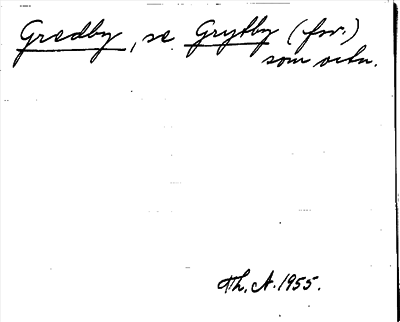 Gredby, se Grytby (fsv.)
som ortn.
Th. A. 1955.